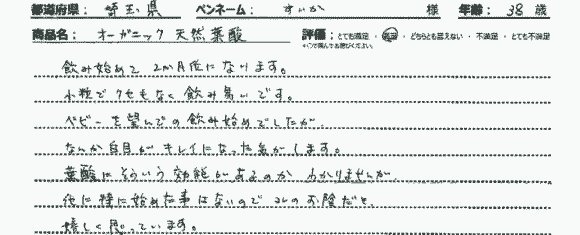 都道府県： 埼玉県 ペンネーム： すいか 様 年齢： 38 歳
商品名： オーガニック 天然葉酸 評価： とても満足 ・ 満足 ・ どちらとも言えない ・ 不満足 ・ とても不満足
*○で囲んでお選びください。
飲み始めて 2か月位になります。
小粒でクセもなく飲み易いです。
ベビーを望んでの飲み始めでしたが、
なんか白目がキレイになった気がします。
葉酸にそういう効能があるのか わかりませんが、
他に特に始めた事はないので コレのお陰だと、
嬉しく思っています。